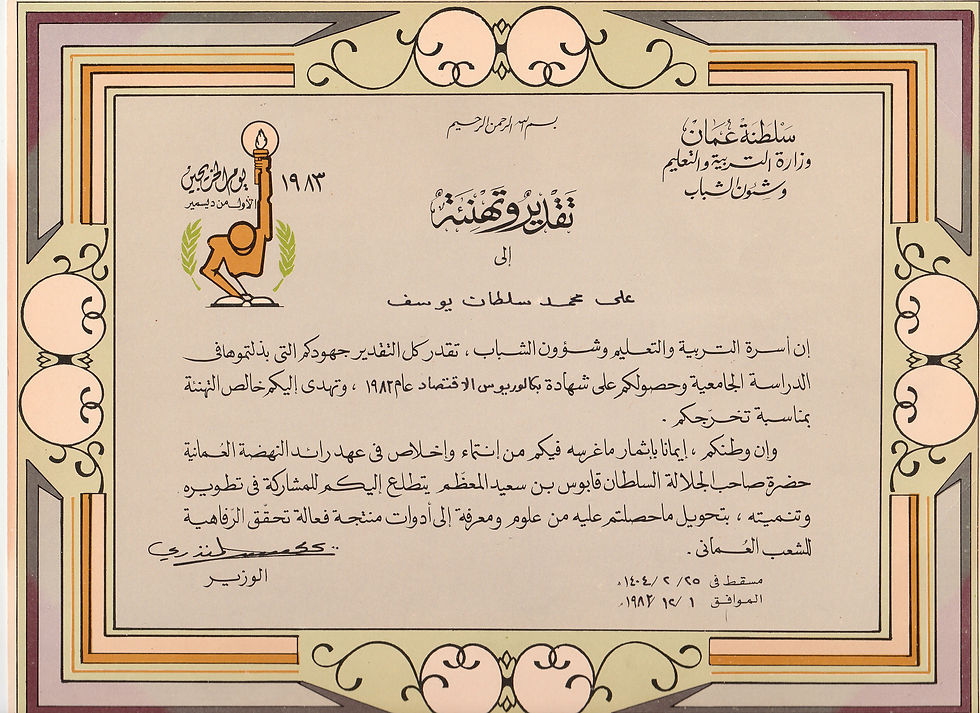 بسم الله الرحمن الرحيم
سلطنة عمان
وزارة التربية والتعليم
وشئون الشباب
يوم الخريجين ١٩٨٣
الأول من ديسمبر
تقدير وتهنئة
إلى
على محمد سلطان يوسف
إن أسرة التربية والتعليم وشؤون الشباب ، تقدر كل التقدير جهودكم التى بذلتموها فى
الدراسة الجامعية وحصولكم على شهادة بكالوريوس الاقتصاد عام ١٩٨٢ ، وتهدى إليكم خالص التهنئة
بمناسبة تخرّجكم .
وإن وطنكم ، إيمانا بإثمار ما غرسه فيكم من إنتماء وإخلاص فى عهد رائد النهضة العُمانية
حضرة صاحب الجلالة السلطان قابوس بن سعيد المعظّم يتطلع إليكم للمشاركة فى تطويره
وتنميته ، بتحويل ما حصلتم عليه من علوم ومعرفة إلى أدوات منتجة فعالة تحقّق الرّفاهية
للشعب العُمانى .
الوزير
مسقط فى ٢٥/ ٢ /١٤٠٤ه
الموافق ١ /١٢ /١٩٨٣م